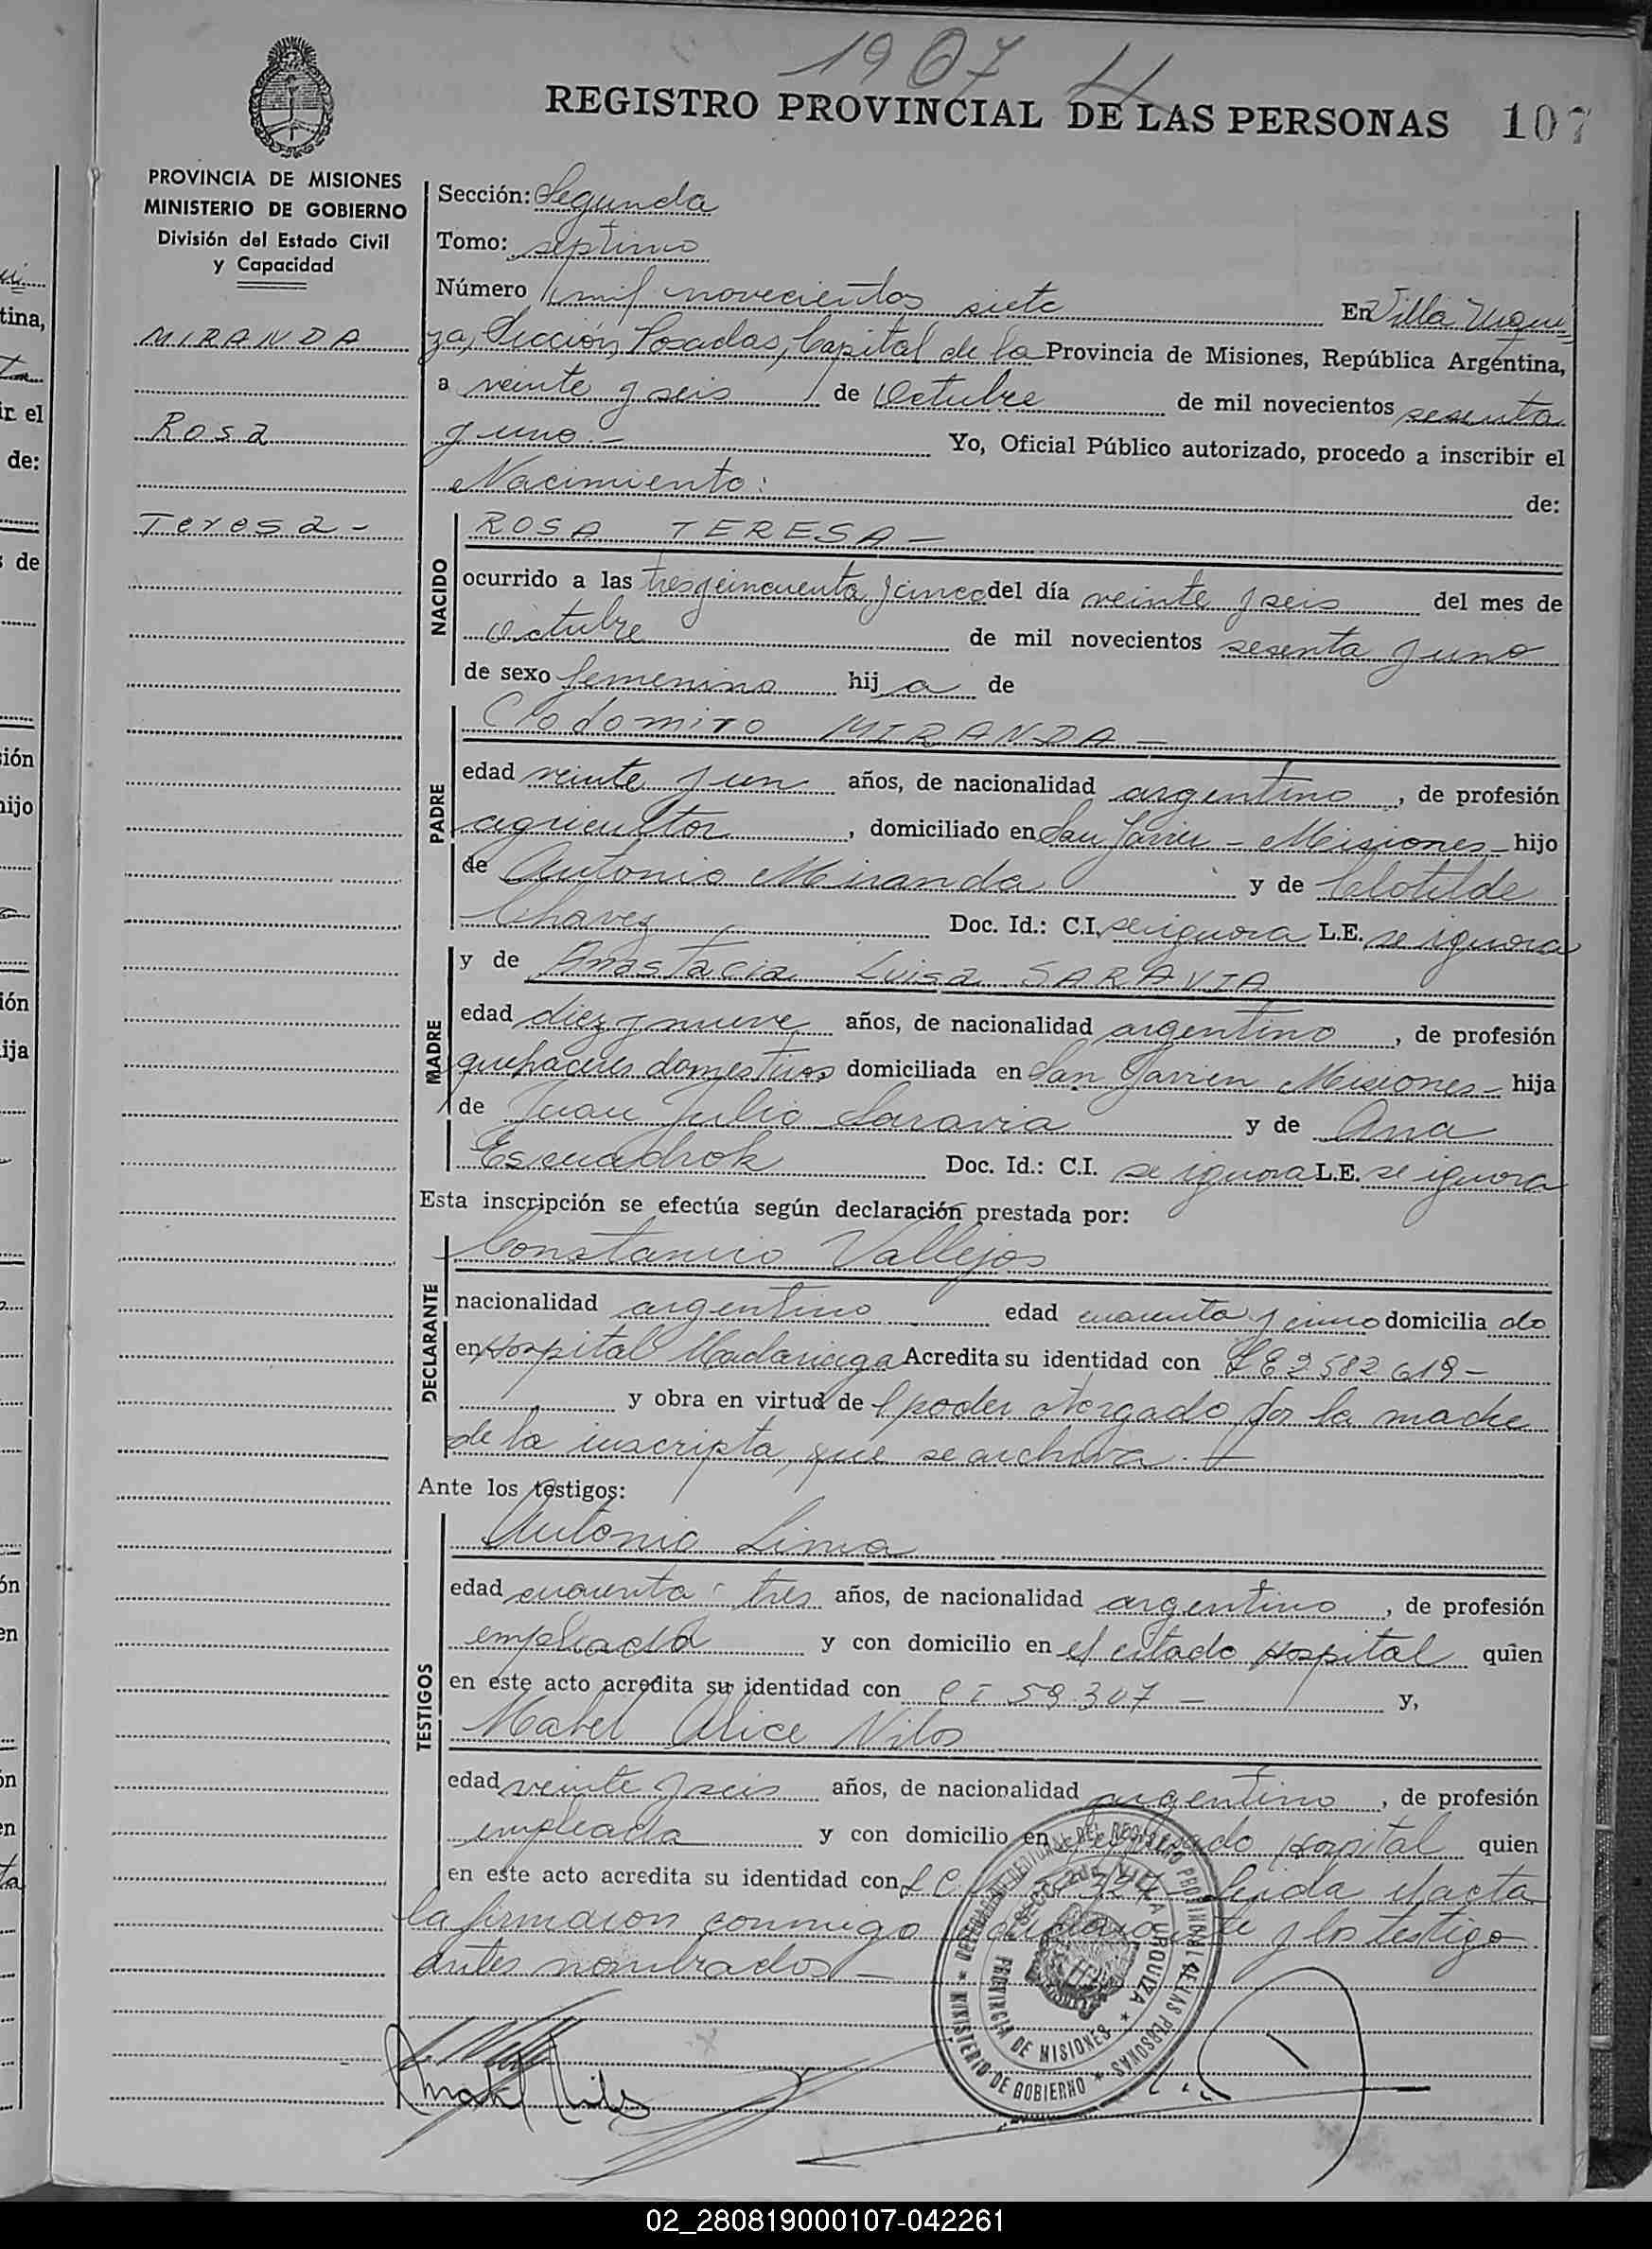 1907
REGISTRO PROVINCIAL DE LAS PERSONAS 107
PROVINCIA DE MISIONES
MINISTERIO DE GOBIERNO
División del Estado Civil
y Capacidad
MIRANDA
Rosa
Teresa -
Sección: Segunda
Tomo: septimo
Número mil novecientos siete En Villa Urqui=
za, Sección Posadas, Capital de la Provincia de Misiones, República Argentina,
a veinte y seis de Octubre de mil novecientos sesenta
y uno.- Yo, Oficial Público autorizado, procedo a inscribir el
Nacimiento: de:
NACIDO
ROSA TERESA -
ocurrido a las tres y cincuenta y cinco del día veinte y seis del mes de
Octubre de mil novecientos sesenta y uno
de sexo femenino hij a de
PADRE
Clodomiro MIRANDA -
edad veinte y un años, de nacionalidad argentino, de profesión
agricultor, domiciliado en San Javier - Misiones - hijo
de Antonio Miranda y de Clotilde
Chavez Doc. Id.: C.I. se ignora L.E. se ignora
MADRE
y de Anastacia Luisa SARAVIA
edad diez y nueve años, de nacionalidad argentino, de profesión
quehaceres domesticos domiciliada en San Javier Misiones - hija
de Juan Julio Saravia y de Ana
Escuadrok Doc. Id.: C.I. se ignora L.E. se ignora
Esta inscripción se efectúa según declaración prestada por:
DECLARANTE
Constancio Vallejos
nacionalidad argentino edad cuarenta y cinco domicilia do
en Hospital Madariaga Acredita su identidad con LE 2582619 -
y obra en virtud de l poder otorgado por la madre
de la inscripta, que se archiva. -
Ante los testigos:
TESTIGOS
Antonio Lima
edad cuarenta y tres años, de nacionalidad argentino, de profesión
empleado y con domicilio en el citado Hospital quien
en este acto acredita su identidad con CI 59.307 - y,
Mabel Alice Nilos
edad veinte y seis años, de nacionalidad argentino, de profesión
empleada y con domicilio en el citado Hospital quien
en este acto acredita su identidad con L C Leida el acta
la firmaron conmigo el declarante y los testigo
antes nombrados -
DELEGACION SECCIONAL DEL REGISTRO PROVINCIAL DE LAS PERSONAS
MINISTERIO DE GOBIERNO
VILLA URQUIZA
PROVINCIA DE MISIONES
Mabel Nilos
02_280819000107-042261